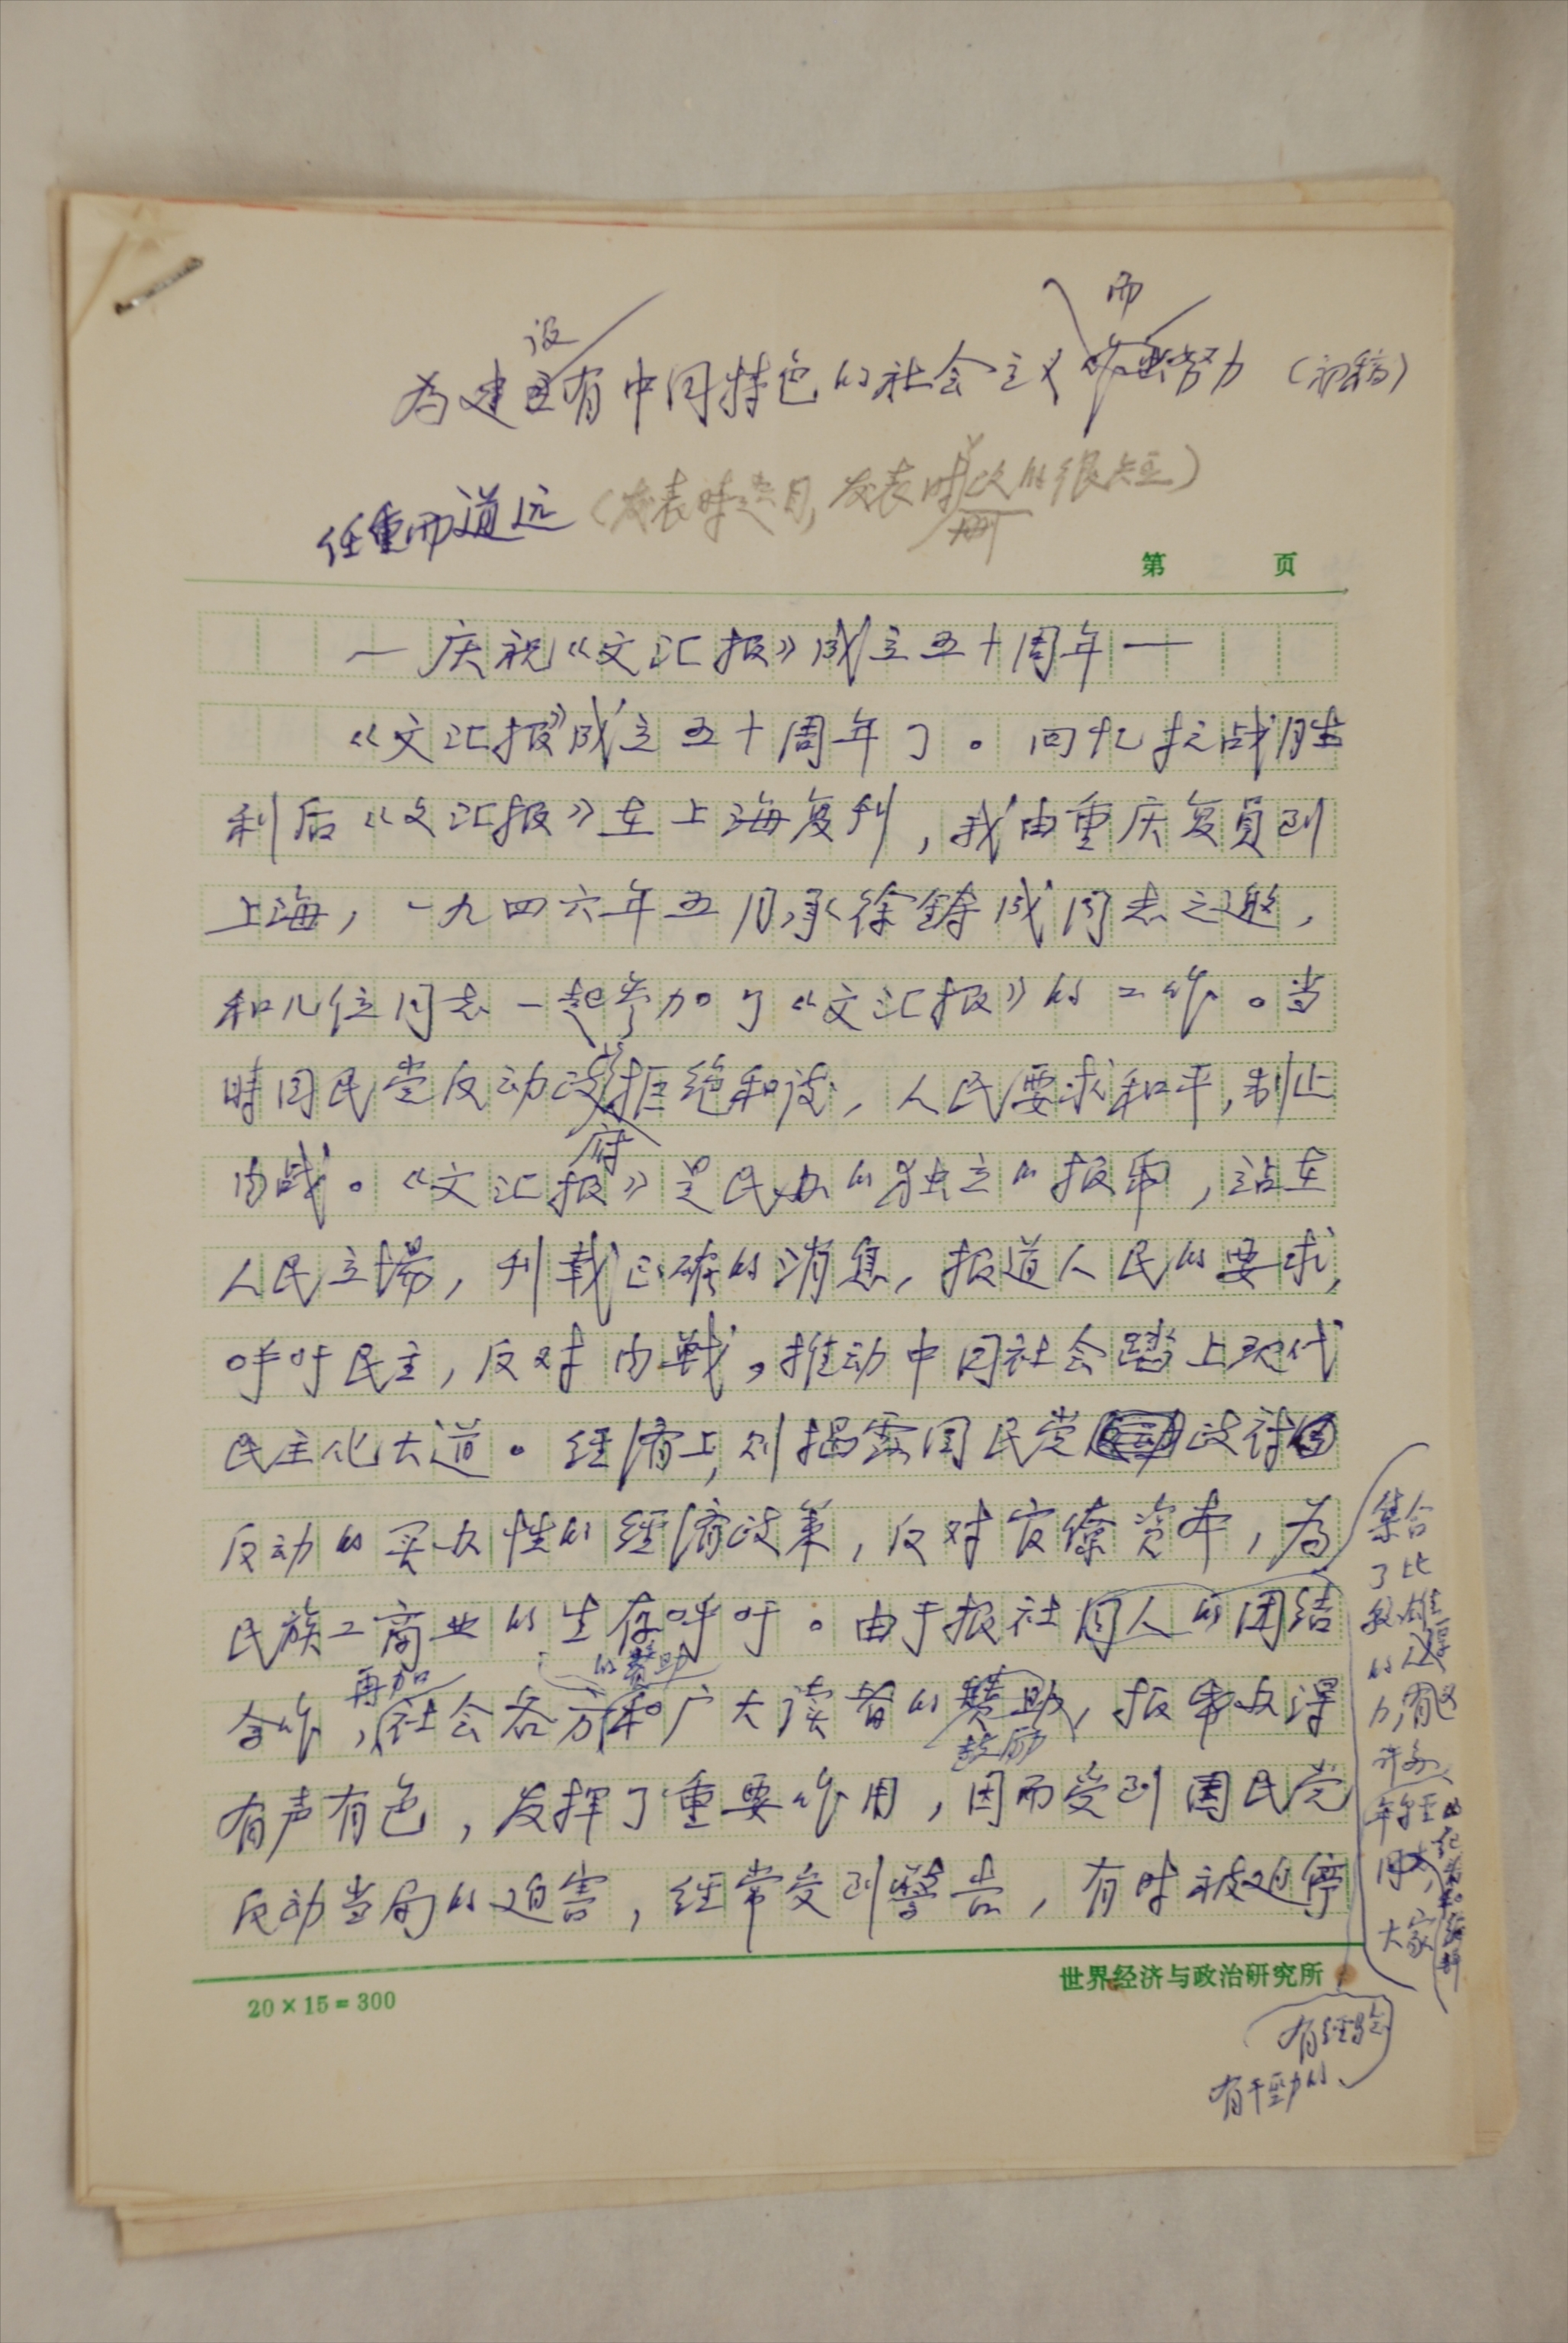 设 而
为建立有中国特色的社会主义作出努力（初稿）
任重而道远（发表时题目，发表时改的很短）
删
第 页
—庆祝《文汇报》成立五十周年—
《文汇报》成立五十周年了。回忆抗战胜
利后《文汇报》在上海复刊，我由重庆复员到
上海，一九四六年五月承徐铸成同志之邀，
和几位同志一起参加了《文汇报》的工作。当
时国民党反动政拒绝和谈，人民要求和平，制止
府
内战。《文汇报》是民办的独立的报纸，站在
人民立场，刊载正确的消息，报道人民的要求，
呼吁民主，反对内战。推动中国社会踏上现代
民主化大道。经济上，则揭露国民党政府
反动的买办性的经济政策，反对官僚资本，为
民族工商业的生存呼吁。由于报社同人的团结
再加 的赞助
合作，社会各方和广大读者的赞助，报纸办得
鼓励
有声有色，发挥了重要作用，因而受到国民党
反动当局的迫害，经常受到警告，有时被迫停
集合
了比
较雄厚
的
力，有
许多
年轻的记者和编辑
同志，
大家
20×15=300
世界经济与政治研究所
有经验
有干劲的、